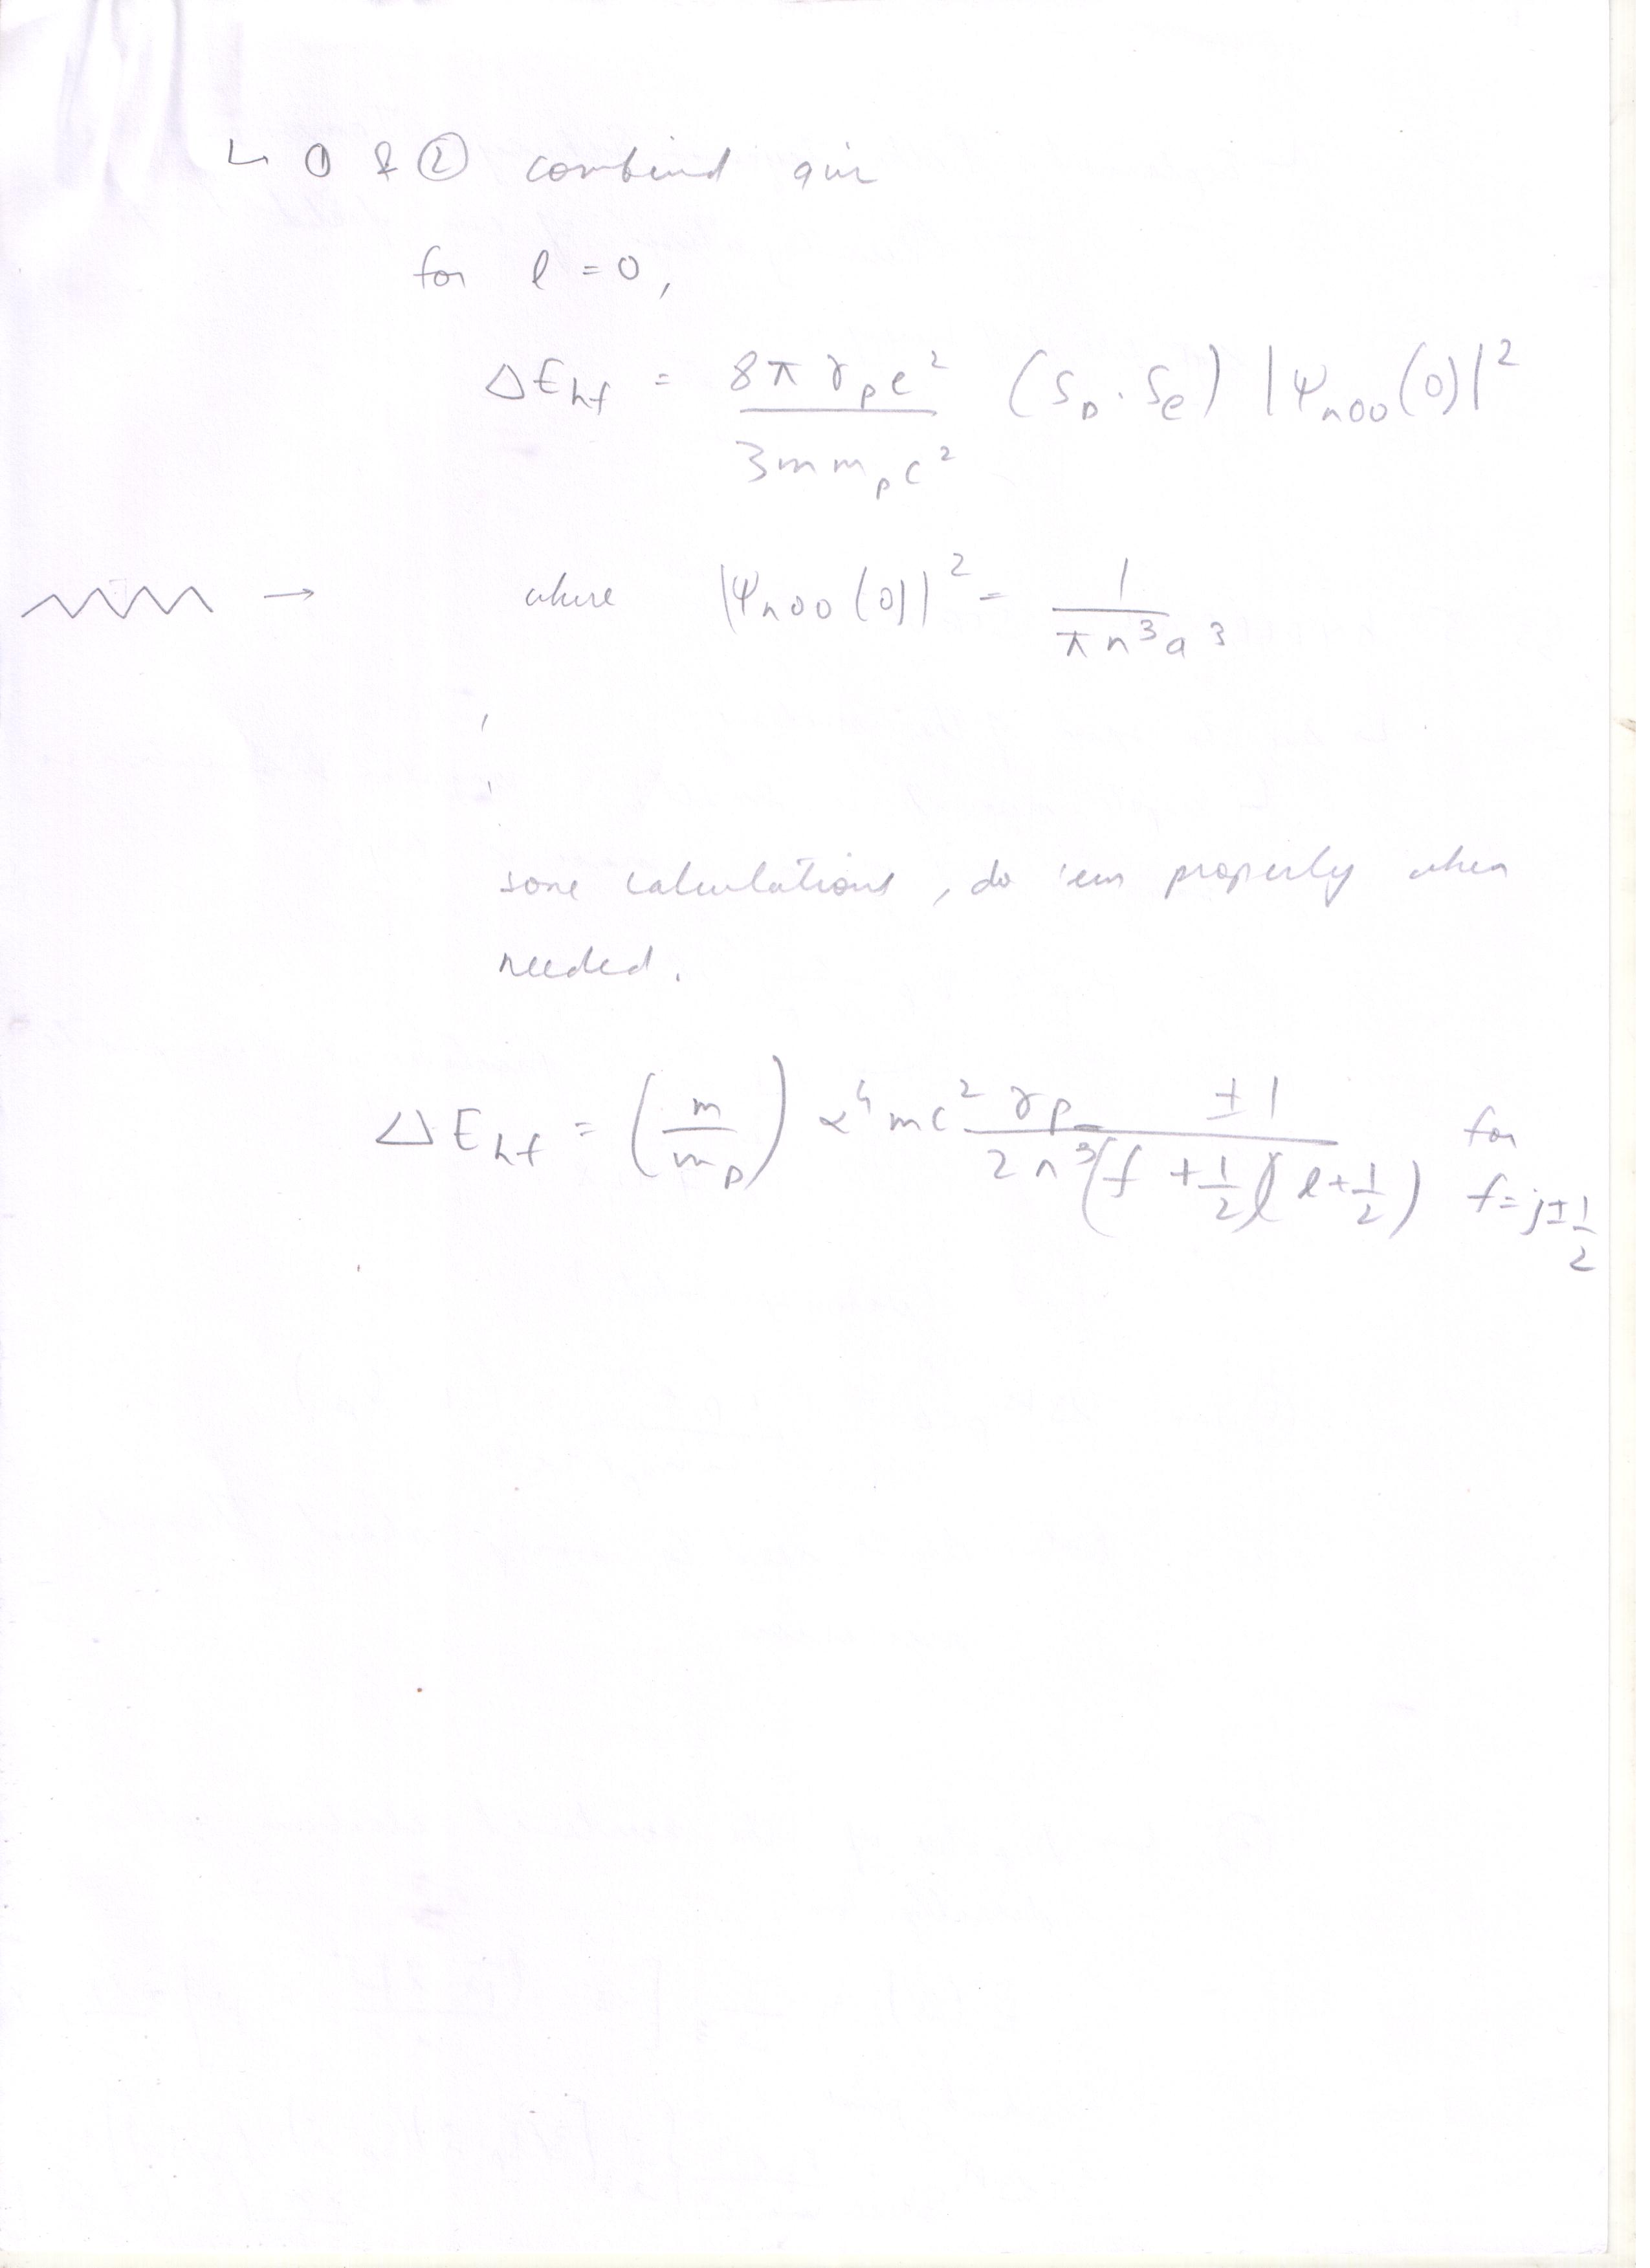 ↳ ① & ② combind give
for l = 0,
ΔE_hf = 8π γ_p e² / 3 m m_p c² (S_p · S_e) |Ψ_n00(0)|²
→ where |Ψ_n00(0)|² = 1 / π n³ a³
some calculations, do 'em properly when
needed.
ΔE_hf = (m / m_p) α⁴ mc² γ_p / 2n³ ±1 / (f + 1/2)(l + 1/2) for f = j ± 1/2